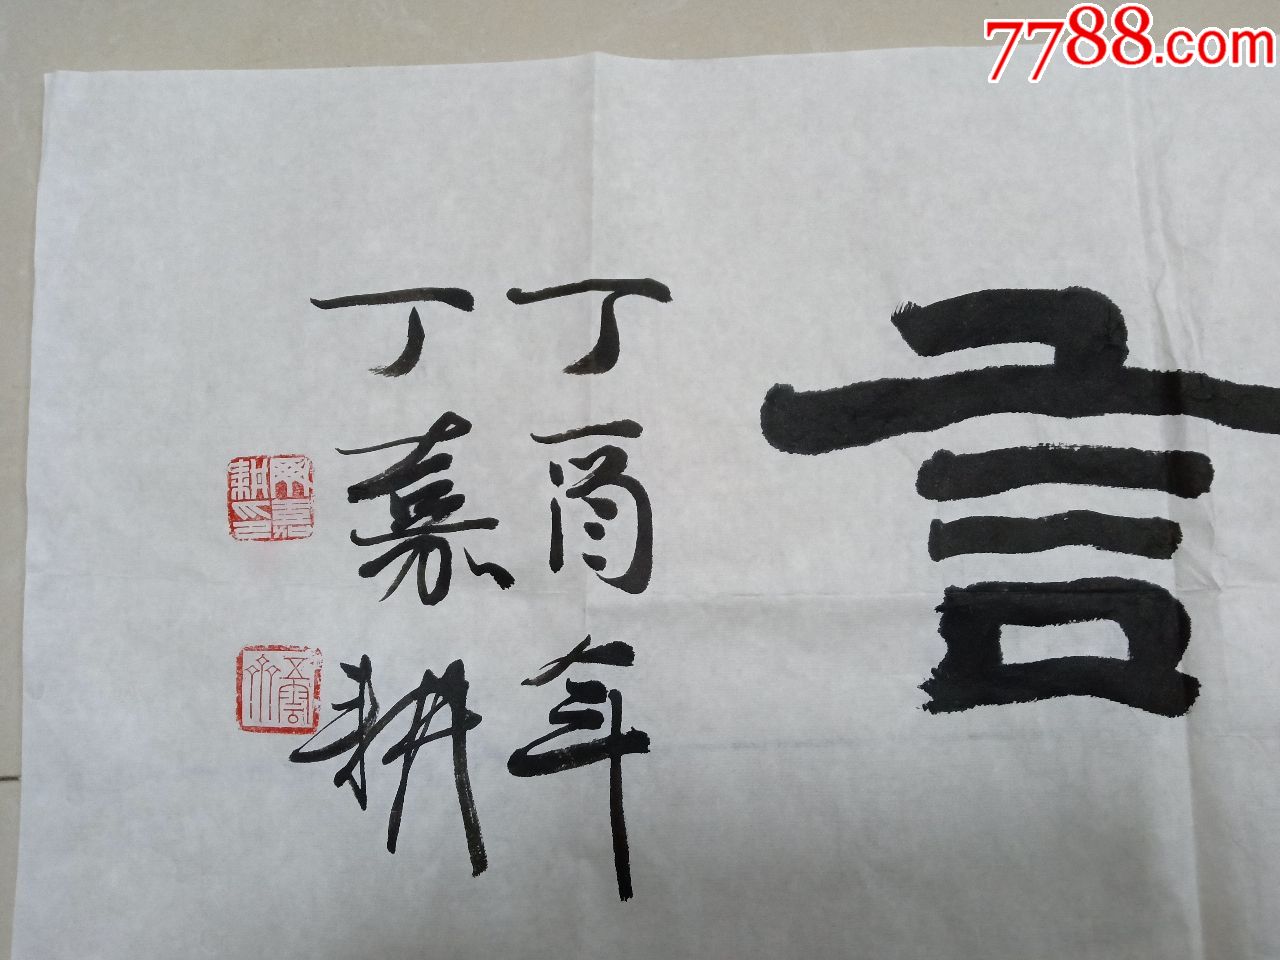 7788.com
言
丁酉年
丁嘉耕